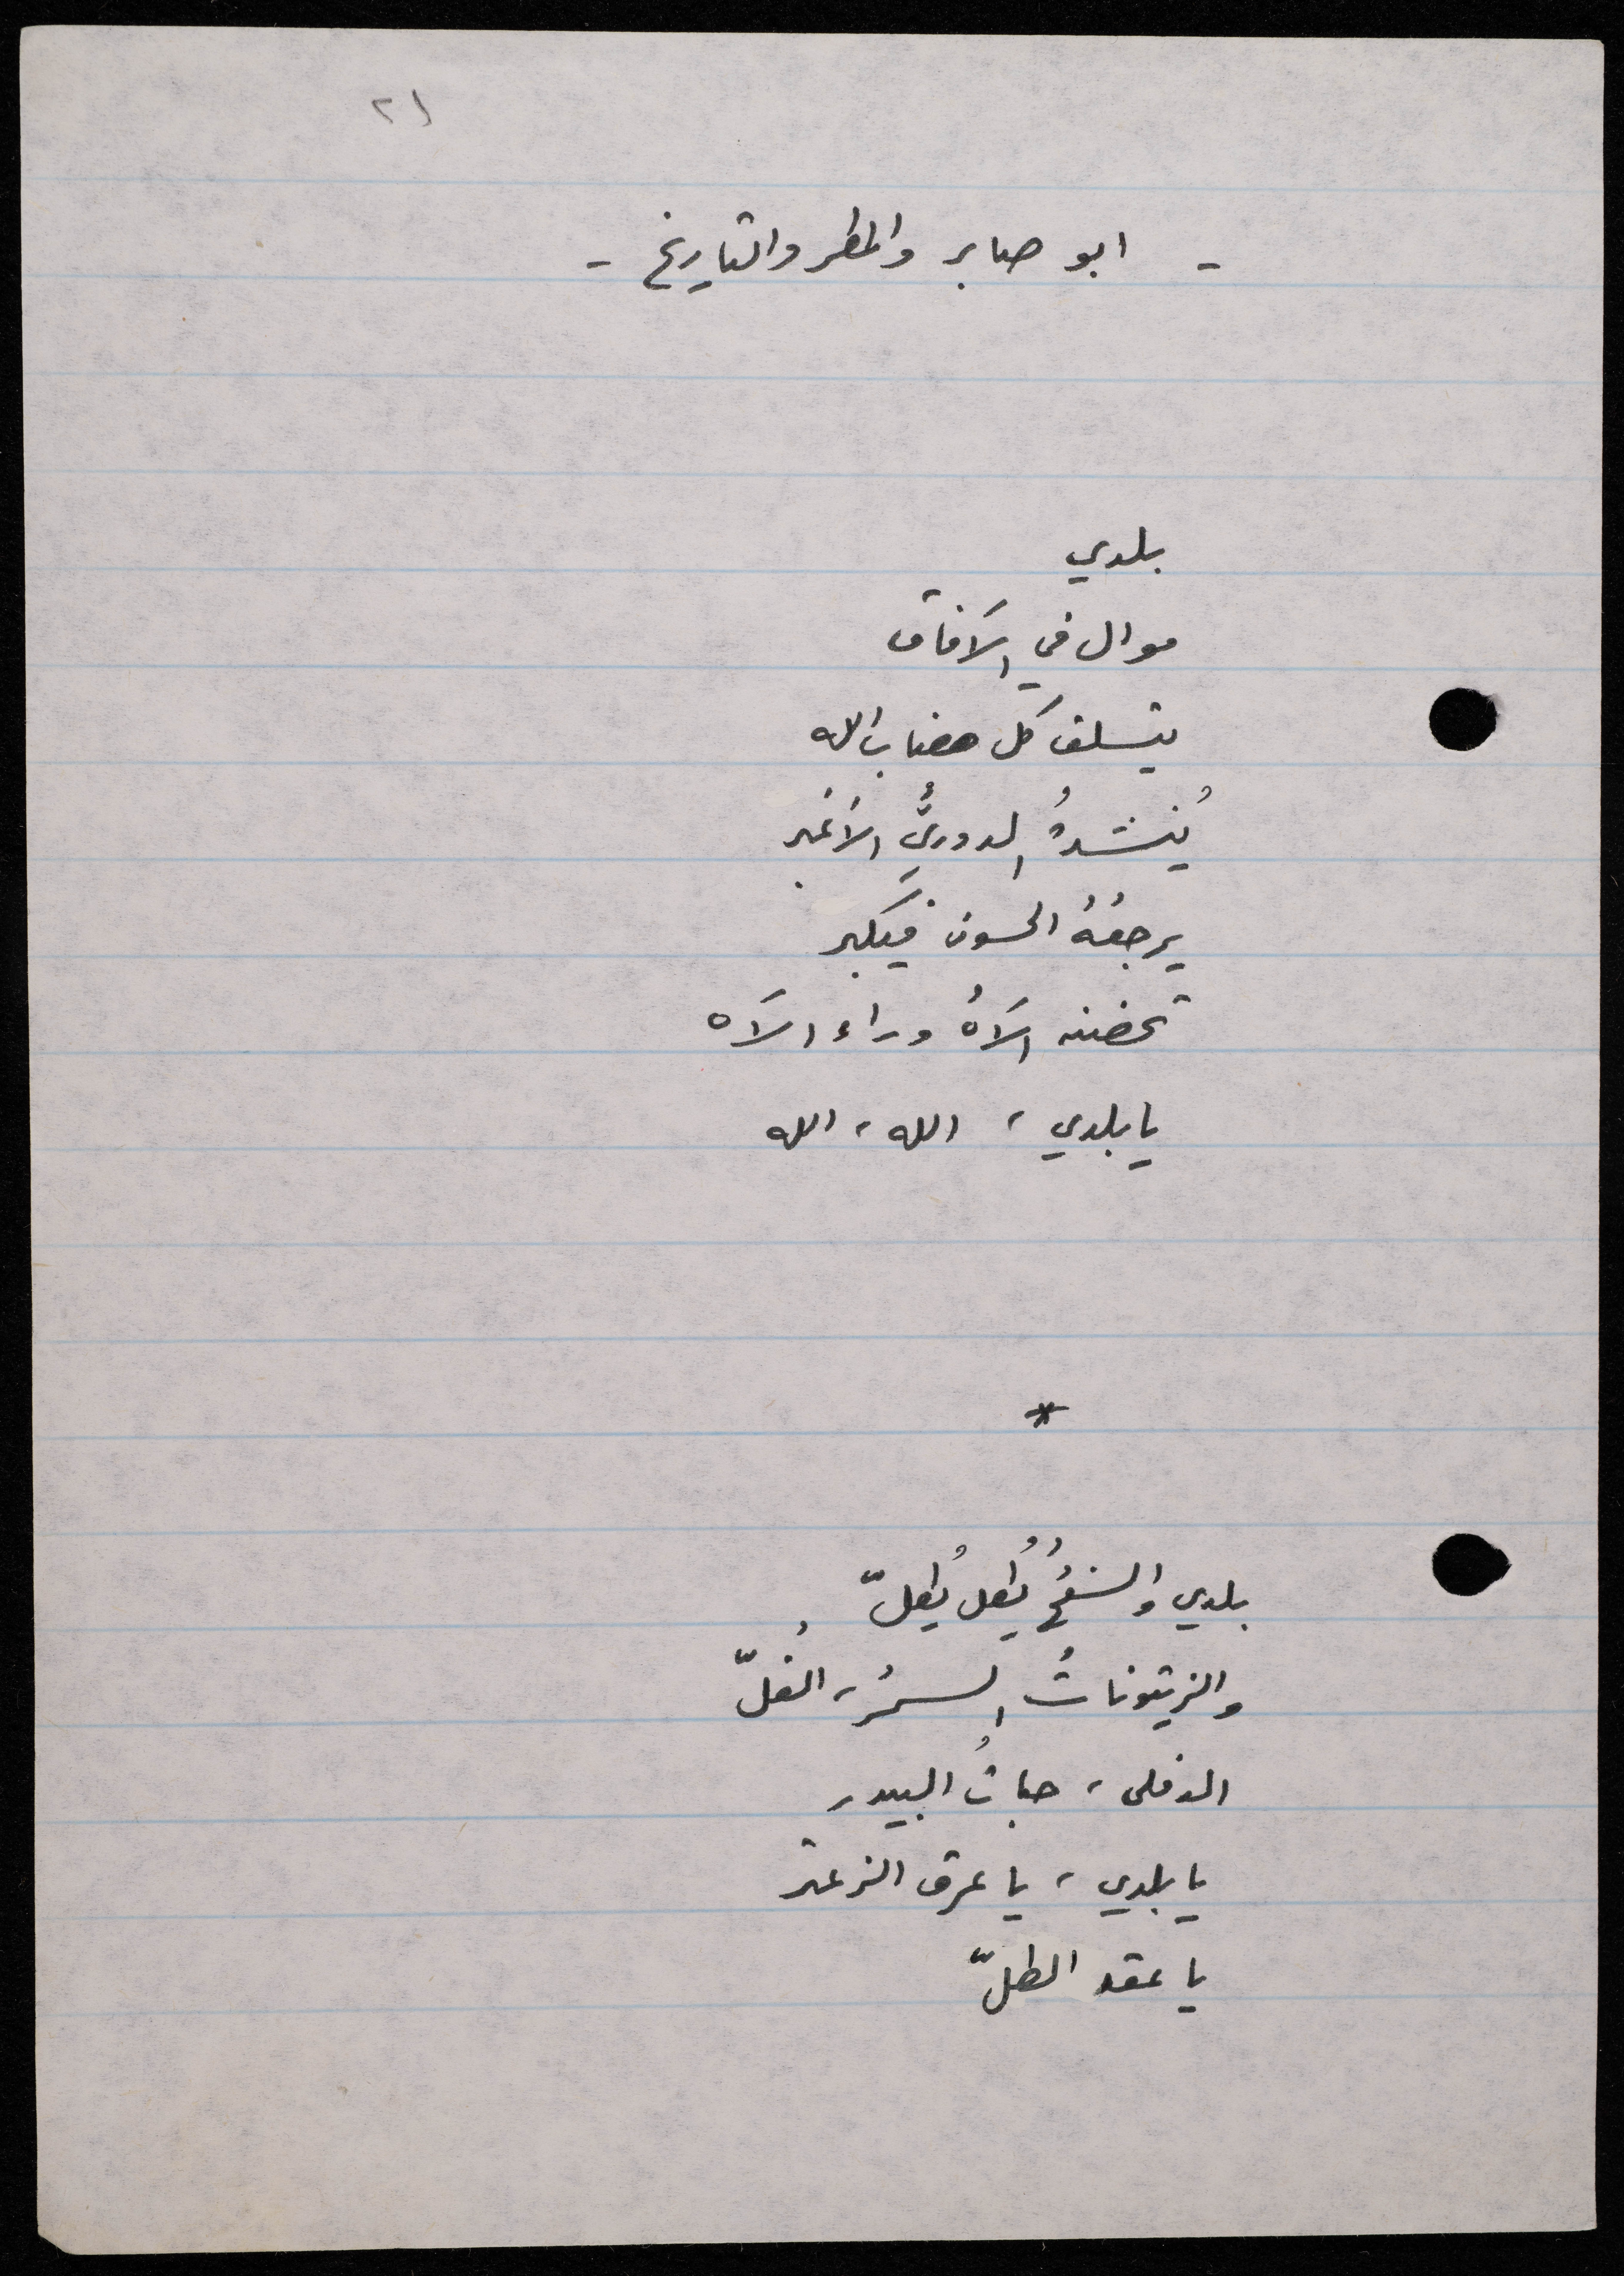 ٢١
- ابو صابر والمطر والتاريخ -
بلدي
موال في الآفاق
يتسلق كل هضاب الله
يُنشدهُ الدوريُّ الأغبر
يرجعُهُ الحسون فيكبر
تحضنه الآهُ وراء الآه
يا بلدي، الله، الله
*
بلدي والسفحُ يُطل يُطلّ
والزيتوناتُ السمرُ، الفلّ
الدفلى، حباتُ البيدر
يا بلدي، يا عرق الزعتر
يا عقد الطلّ